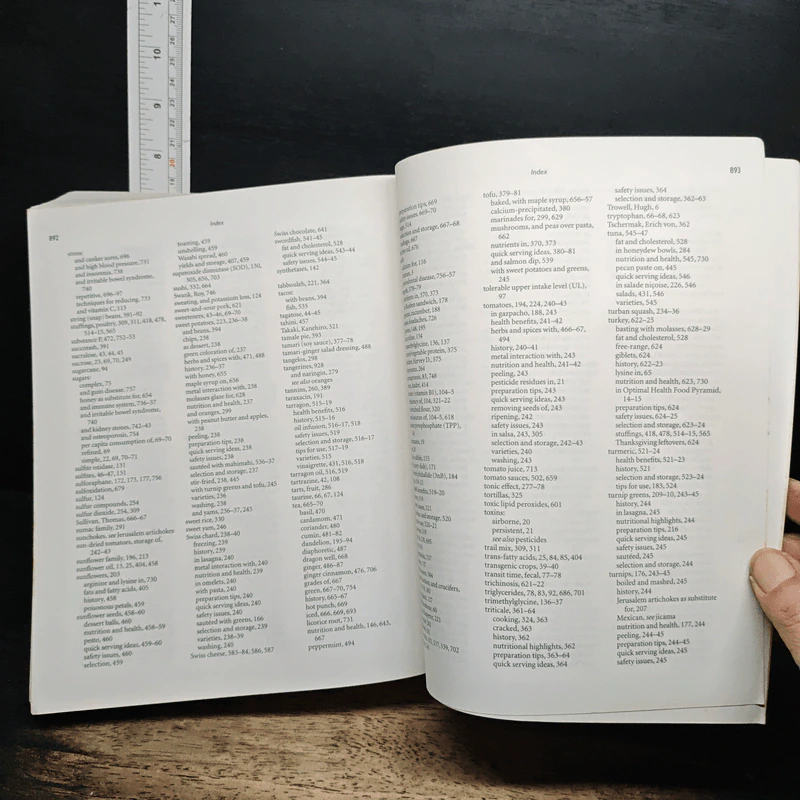 10
9
8
27
26
25
24
23
22
21
20
892
Index
stress:
and canker sores, 696
and high blood pressure, 731
and insomnia, 738
and irritable bowel syndrome,
740
repetitive, 696–97
techniques for reducing, 733
and vitamin C, 113
string (snap) beans, 291–92
stuffings, poultry, 309, 311, 418, 478,
514–15, 565
substance P, 472, 752–53
succotash, 391
sucralose, 43, 44, 45
sucrose, 25, 69, 70, 249
sugarcane, 94
sugars:
complex, 75
and gum disease, 757
honey as substitute for, 654
and immune system, 736–37
and irritable bowel syndrome,
740
and kidney stones, 742–43
and osteoporosis, 754
per capita consumption of, 69–70
refined, 69
simple, 22, 69, 70–71
sulfite oxidase, 131
sulfites, 46–47, 131
sulforaphane, 172, 173, 177, 756
sulfoxidation, 679
sulfur, 124
sulfur compounds, 254
sulfur dioxide, 254, 309
Sullivan, Thomas, 666–67
sumac family, 291
sunchokes, see Jerusalem artichokes
sun-dried tomatoes, storage of,
242–43
sunflower family, 196, 213
sunflower oil, 13, 25, 404, 458
sunflowers, 203
arginine and lysine in, 730
fats and fatty acids, 405
history, 458
poisonous metals, 459
sunflower seeds, 458–60
dessert balls, 460
nutrition and health, 458–59
pesto, 460
quick serving ideas, 459–60
safety issues, 460
selection, 459
toasting, 459
unshelling, 459
Wasabi spread, 460
yields and storage, 407, 459
superoxide dismutase (SOD), 130,
305, 656, 703
sushi, 332, 664
Swank, Roy, 746
sweating, and potassium loss, 124
sweet-and-sour pork, 621
sweeteners, 43–46, 69–70
sweet potatoes, 223, 236–38
and beans, 394
chips, 238
as dessert, 238
green coloration of, 237
herbs and spices with, 471, 488
history, 236–37
with honey, 655
maple syrup on, 656
metal interaction with, 238
molasses glaze for, 628
nutrition and health, 237
and oranges, 299
with peanut butter and apples,
238
peeling, 238
preparation tips, 238
quick serving ideas, 238
safety issues, 238
sautéed with mahimahi, 536–37
selection and storage, 237
stir-fried, 238, 445
with turnip greens and tofu, 245
varieties, 236
washing, 238
and yams, 236–37, 245
sweet rue, 330
sweet yam, 246
Swiss chard, 238–40
freezing, 238
history, 239
in lasagna, 240
metal interaction with, 240
nutrition and health, 239
in omelets, 240
with pasta, 240
preparation tips, 240
quick serving ideas, 240
safety issues, 240
sautéed with greens, 166
selection and storage, 239
varieties, 238–39
washing, 240
Swiss cheese, 583–84, 586, 587
Swiss chocolate, 641
swordfish, 541–45
fat and cholesterol, 528
quick serving ideas, 543–44
safety issues, 544–45
synthetases, 142
tabbouleh, 221, 364
tacos:
with beans, 394
fish, 535
tagatose, 44–45
tahini, 457
Takaki, Kanehiro, 321
tamale pie, 393
tamari (soy sauce), 377–78
tamari-ginger salad dressing, 488
tangelos, 298
tangerines, 928
and naringin, 279
see also oranges
tannins, 260, 389
taraxacin, 191
tarragon, 515–19
health benefits, 516
history, 515–16
oil infusion, 516–17, 518
safety issues, 519
selection and storage, 516–17
tips for use, 517–19
varieties, 515
vinaigrette, 431, 516, 518
tarragon oil, 516, 519
tartrazine, 42, 108
tarts, fruit, 286
taurine, 66, 67, 124
tea, 665–70
basil, 470
cardamom, 471
coriander, 480
cumin, 481–82
dandelion, 193–94
diaphoretic, 487
dragon well, 668
ginger, 486–87
ginger cinnamon, 476, 706
grades of, 667
green, 667–70, 754
history, 665–67
hot punch, 669
iced, 666, 669, 693
licorice root, 731
nutrition and health, 146, 643,
667
peppermint, 494
Index
893
preparation tips, 669
safety issues, 669–70
and storage, 667–68
tofu, 379–81
baked, with maple syrup, 656–57
calcium-precipitated, 380
marinades for, 299, 629
mushrooms, and peas over pasta,
662
nutrients in, 370, 373
quick serving ideas, 380–81
and salmon dip, 539
with sweet potatoes and greens,
245
tolerable upper intake level (UL),
97
tomatoes, 194, 224, 240–43
in garpacho, 188, 243
health benefits, 241–42
herbs and spices with, 466–67,
494
history, 240–41
metal interaction with, 243
nutrition and health, 241–42
peeling, 243
pesticide residues in, 21
preparation tips, 243
quick serving ideas, 243
removing seeds of, 243
ripening, 242
safety issues, 243
in salsa, 243, 305
selection and storage, 242–43
varieties, 240
washing, 243
tomato juice, 713
tomato sauces, 502, 659
tonic effect, 277–78
tortillas, 325
toxic lipid peroxides, 601
toxins:
airborne, 20
persistent, 21
see also pesticides
trail mix, 309, 311
trans-fatty acids, 25, 84, 85, 404
transgenic crops, 39–40
transit time, fecal, 77–78
trichinosis, 621–22
triglycerides, 78, 83, 92, 686, 701
trimethylglycine, 136–37
triticale, 361–64
cooking, 324, 363
cracked, 363
history, 362
nutritional highlights, 362
preparation tips, 363–64
quick serving ideas, 364
safety issues, 364
selection and storage, 362–63
Trowell, Hugh, 6
tryptophan, 66–68, 623
Tschermak, Erich von, 362
tuna, 545–47
fat and cholesterol, 528
in honeydew bowls, 284
nutrition and health, 545, 730
pecan paste on, 445
quick serving ideas, 546
in salade niçoise, 226, 546
salads, 431, 546
varieties, 545
turban squash, 234–36
turkey, 622–25
basting with molasses, 628–29
fat and cholesterol, 528
free-range, 624
giblets, 624
history, 622–23
lysine in, 65
nutrition and health, 623, 730
in Optimal Health Food Pyramid,
14–15
preparation tips, 624
safety issues, 624–25
selection and storage, 623–24
stuffings, 418, 478, 514–15, 565
Thanksgiving leftovers, 624
turmeric, 521–24
health benefits, 521–23
history, 521
selection and storage, 523–24
tips for use, 183, 524
turnip greens, 209–10, 243–45
history, 244
in lasagna, 245
nutritional highlights, 244
preparation tips, 216
quick serving ideas, 245
safety issues, 245
sautéed, 245
selection and storage, 244
turnips, 176, 243–45
boiled and mashed, 245
history, 244
Jerusalem artichokes as substitute
for, 207
Mexican, see jicama
nutrition and health, 177, 244
peeling, 244–45
preparation tips, 244–45
quick serving ideas, 245
safety issues, 245